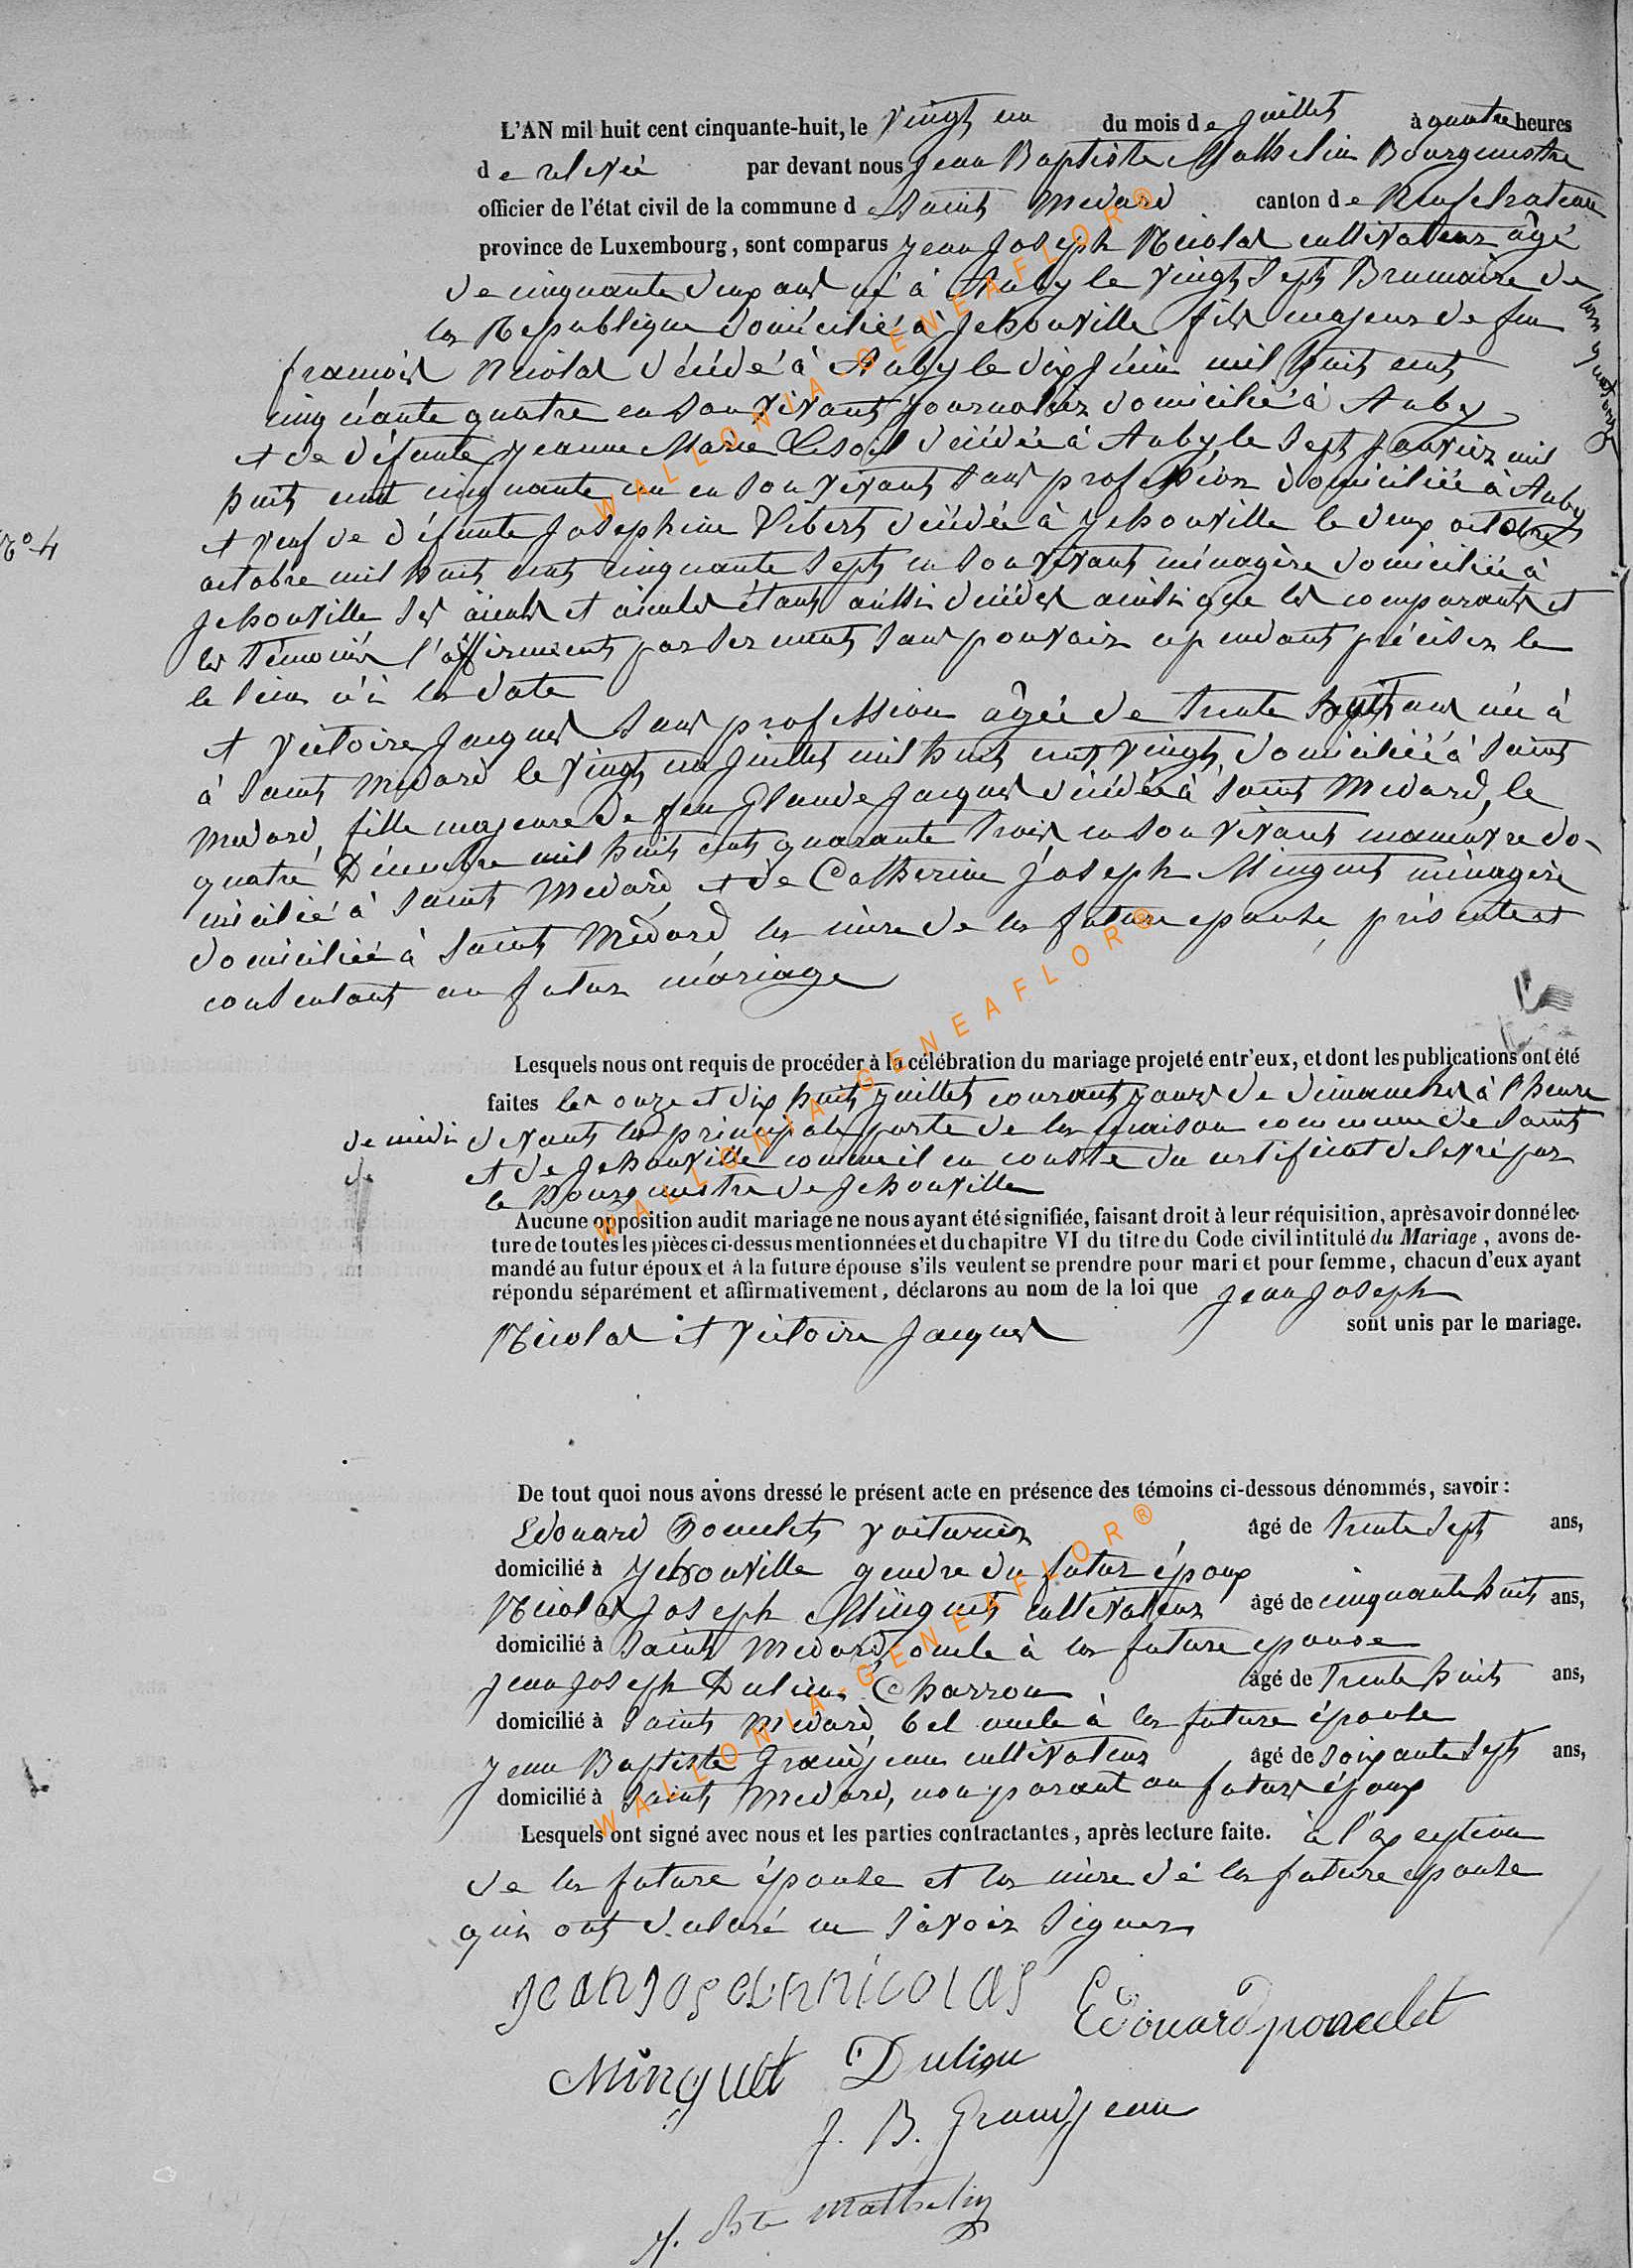 L'AN mil huit cent cinquante-huit, le vingt un du mois de juillet à quatre heures
de relevée par devant nous Jean Baptiste Mathelin Bourgmestre
officier de l'état civil de la commune de Saint Medard canton de Neufchateau
province de Luxembourg, sont comparus Jean Joseph Nicolas cultivateur âgé
de cinquante deux ans né à Auby le vingt sept Brumaire de
l'an quatorze
la Republique domicilié à Jehonville fils majeur de feu
francois Nicolas décédé à Auby le dix juin mil huit cent
cinquante quatre en son vivant journalier domicilié à Auby
et de défunte Jeanne Marie Lesoil décédée à Auby, le sept janvier mil
huit cent cinquante un en son vivant sans profession domiciliée à Auby
N° 4
et veuf de défunte Josephine Vibert décédée à Jehonville le deux octobre
octobre mil huit cent cinquante sept en son vivant ménagère domiciliée à
Jehonville ses aieuls et aieules étant aussi décédés ainsi que les comparants et
les témoins l'affirment par serment sans pouvoir cependant préciser le
le lieu ni la date
et Victoire Jacques sans profession âgée de trente huit ans née à
à Saint Medard le vingt un juillet mil huit cent vingt, domiciliée à Saint
Medard, fille majeure de feu Claude Jacques décédé à Saint Medard, le
quatre Décembre mil huit cent quarante trois en son vivant manœuvre do-
micilié à Saint Medard et de Catherine Joseph Minguet ménagère
domiciliée à Saint Médard la mère de la future epouse, présente et
consentant au futur mariage
Lesquels nous ont requis de procéder à la célébration du mariage projeté entr'eux, et dont les publications ont été
faites les onze et dix huit juillet courant jours de dimanches à l'heure
de midi devant la principale porte de la maison commune de Saint
de et de Jehonville comme il en conste du certificat delivré par
le Bourgmestre de Jehonville
Aucune opposition audit mariage ne nous ayant été signifiée, faisant droit à leur réquisition, après avoir donné lec-
ture de toutes les pièces ci-dessus mentionnées et du chapitre VI du titre du Code civil intitulé du Mariage, avons de-
mandé au futur époux et à la future épouse s'ils veulent se prendre pour mari et pour femme, chacun d'eux ayant
répondu séparément et affirmativement, déclarons au nom de la loi que Jean Joseph
Nicolas et Victoire Jacques sont unis par le mariage.
De tout quoi nous avons dressé le présent acte en présence des témoins ci-dessous dénommés, savoir :
Edouard Poncelet voiturier âgé de trente sept ans,
domicilié à Jehonville gendre du futur époux
Nicolas Joseph Minguet cultivateur âgé de cinquante huit ans,
domicilié à Saint Medard, oncle à la future epouse
Jean Joseph Dulieu Charron âgé de trente huit ans,
domicilié à Saint Medard, bel oncle à la future épouse
Jean Baptiste Grandjean cultivateur âgé de soixante sept ans,
domicilié à Saint Medard, non parant au futur époux
Lesquels ont signé avec nous et les parties contractantes, après lecture faite. à l'exception
de la future épouse et la mère de la future epouse
qui ont declaré ne savoir signer
jean joseph nicolas Edouard poncelet
Minguet Dulieu
J. B. Grandjean
J. Bte Mathelin
WALLONIA-GENEAFLOR®
WALLONIA-GENEAFLOR®
WALLONIA-GENEAFLOR®